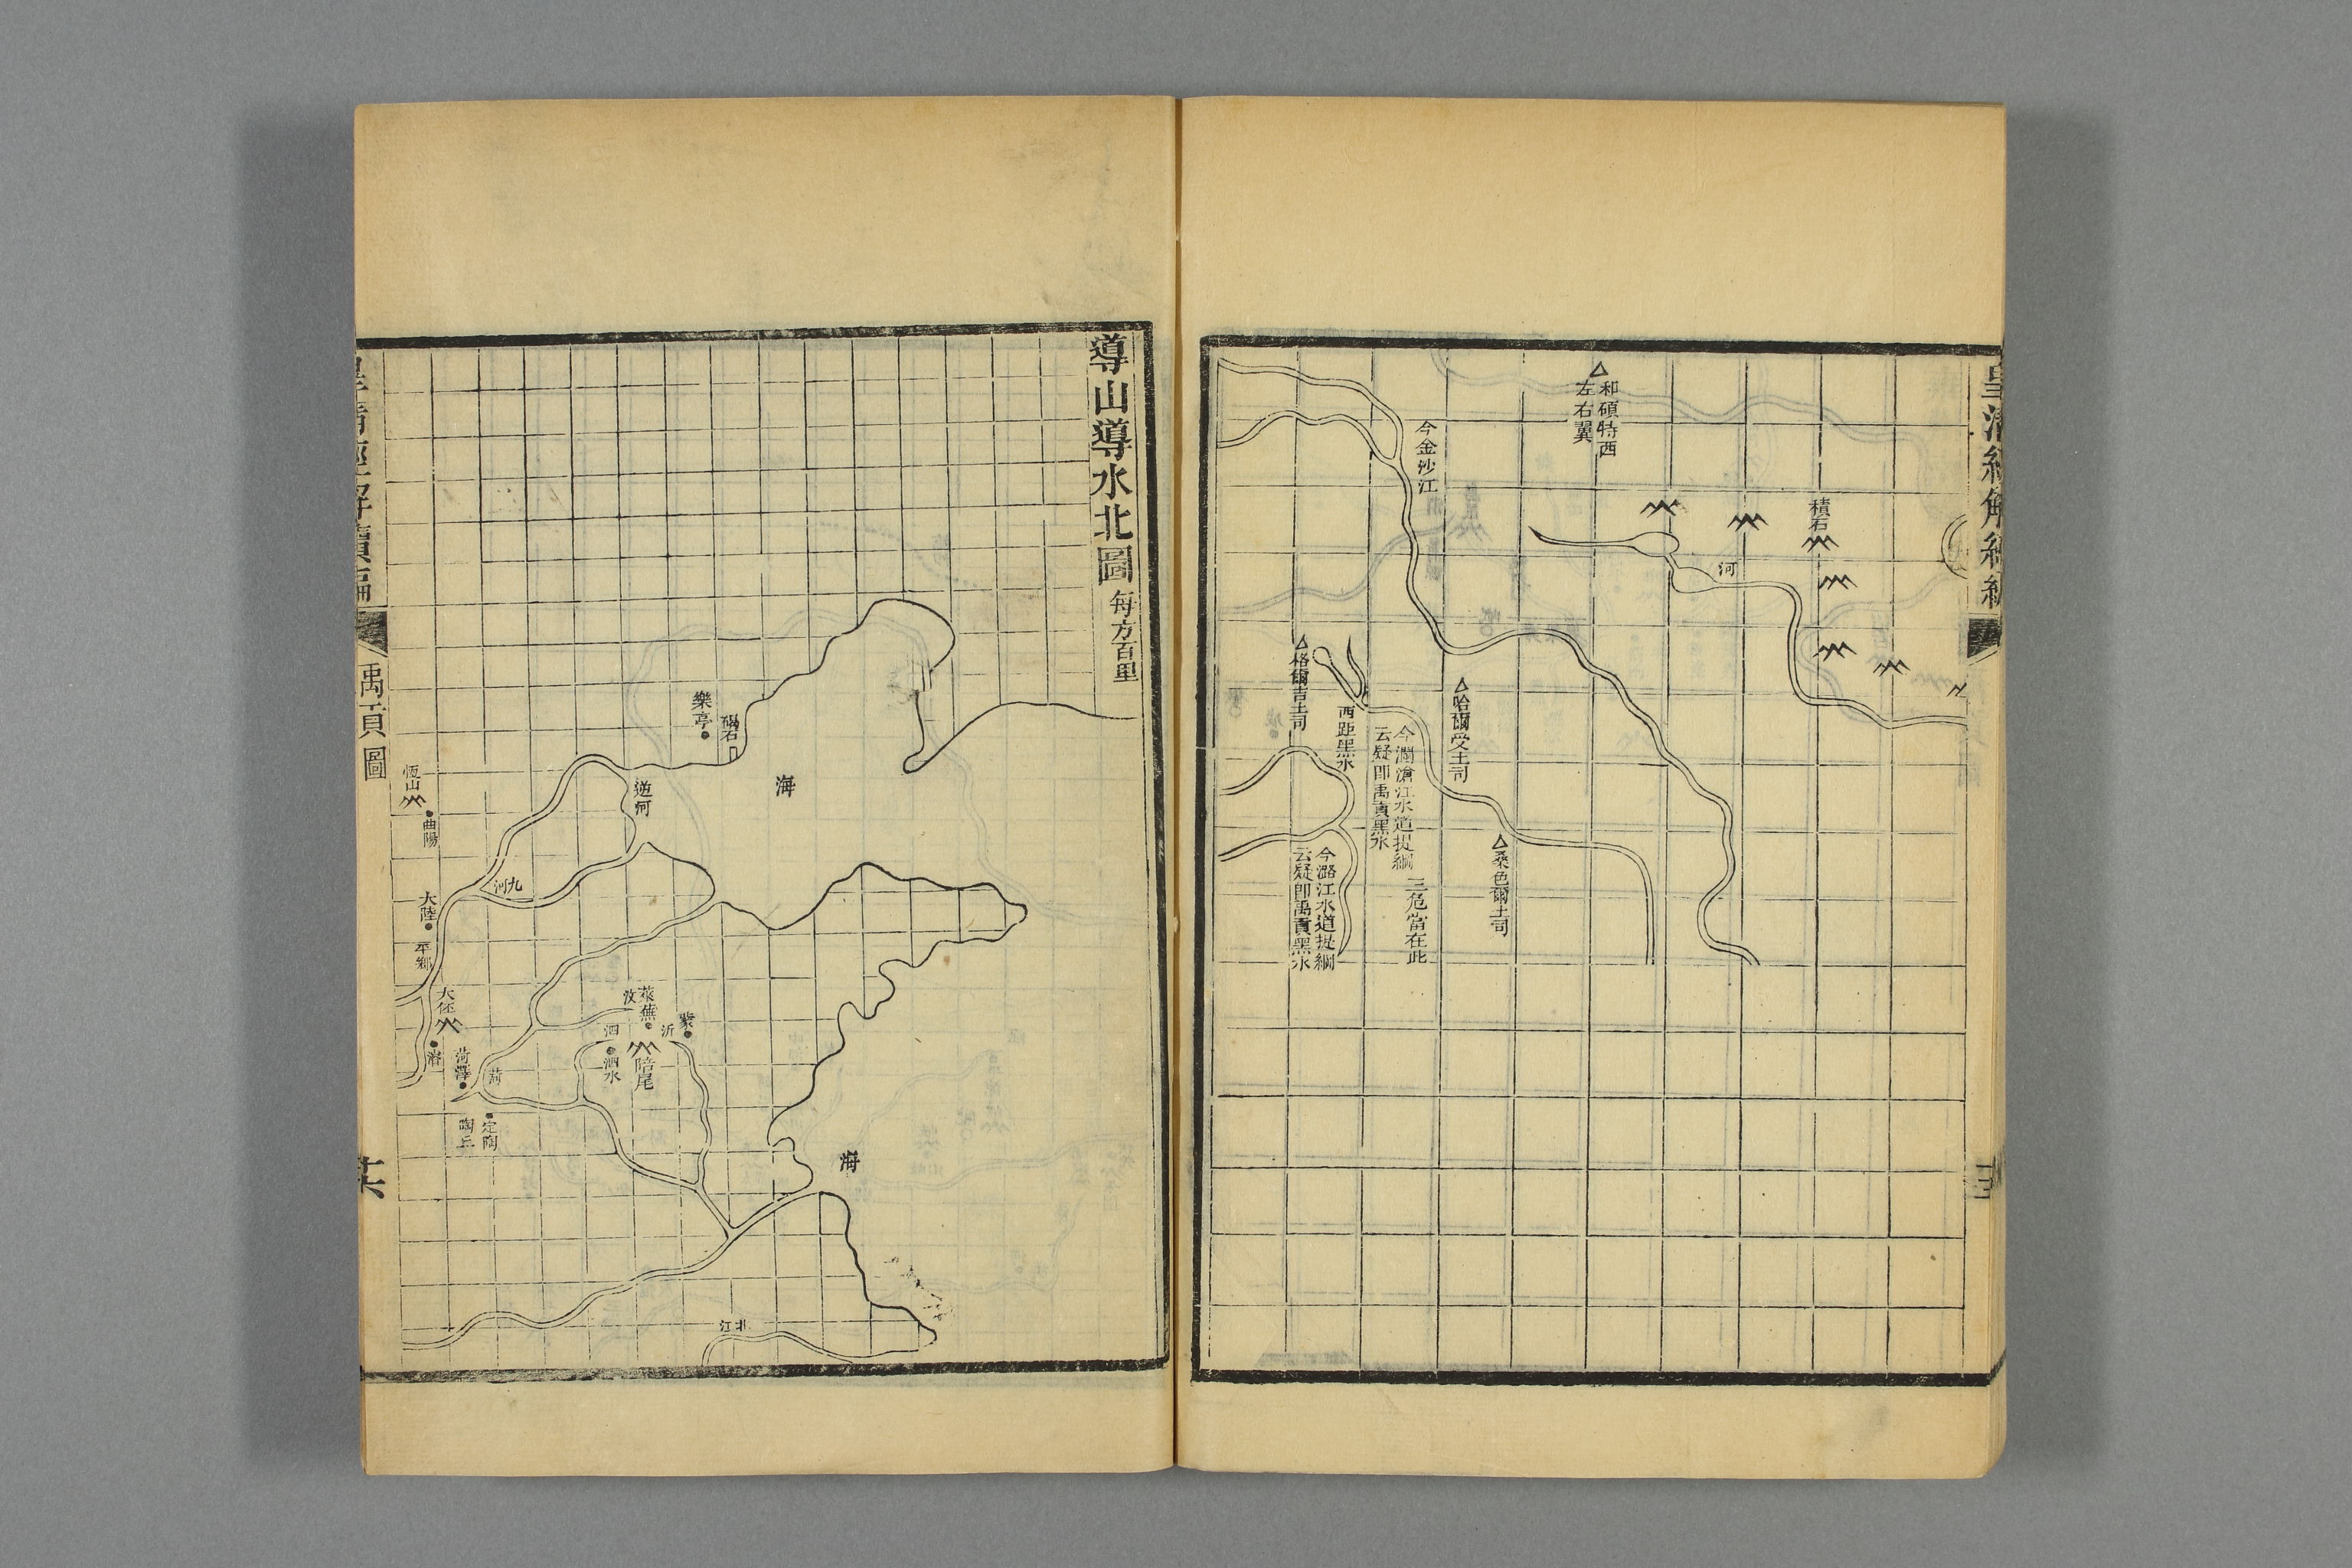 皇清經解續編
和碩特西
左右翼
積石
河
今金沙江
哈爾受土司
桑色爾土司
今瀾滄江水道提綱
云疑即禹貢黑水
三危當在此
西距黑水
格爾吉土司
今潞江水道提綱
云疑即禹貢黑水
導山導水北圖 每方百里
海
海
碣石
樂亭
逆河
九河
蒙
沂
萊蕪
汶
陪尾
泗
泗水
北江
菏
定陶
陶丘
菏澤
恆山
曲陽
大陸
平鄉
大伾
濬
皇清經解續編
禹貢圖